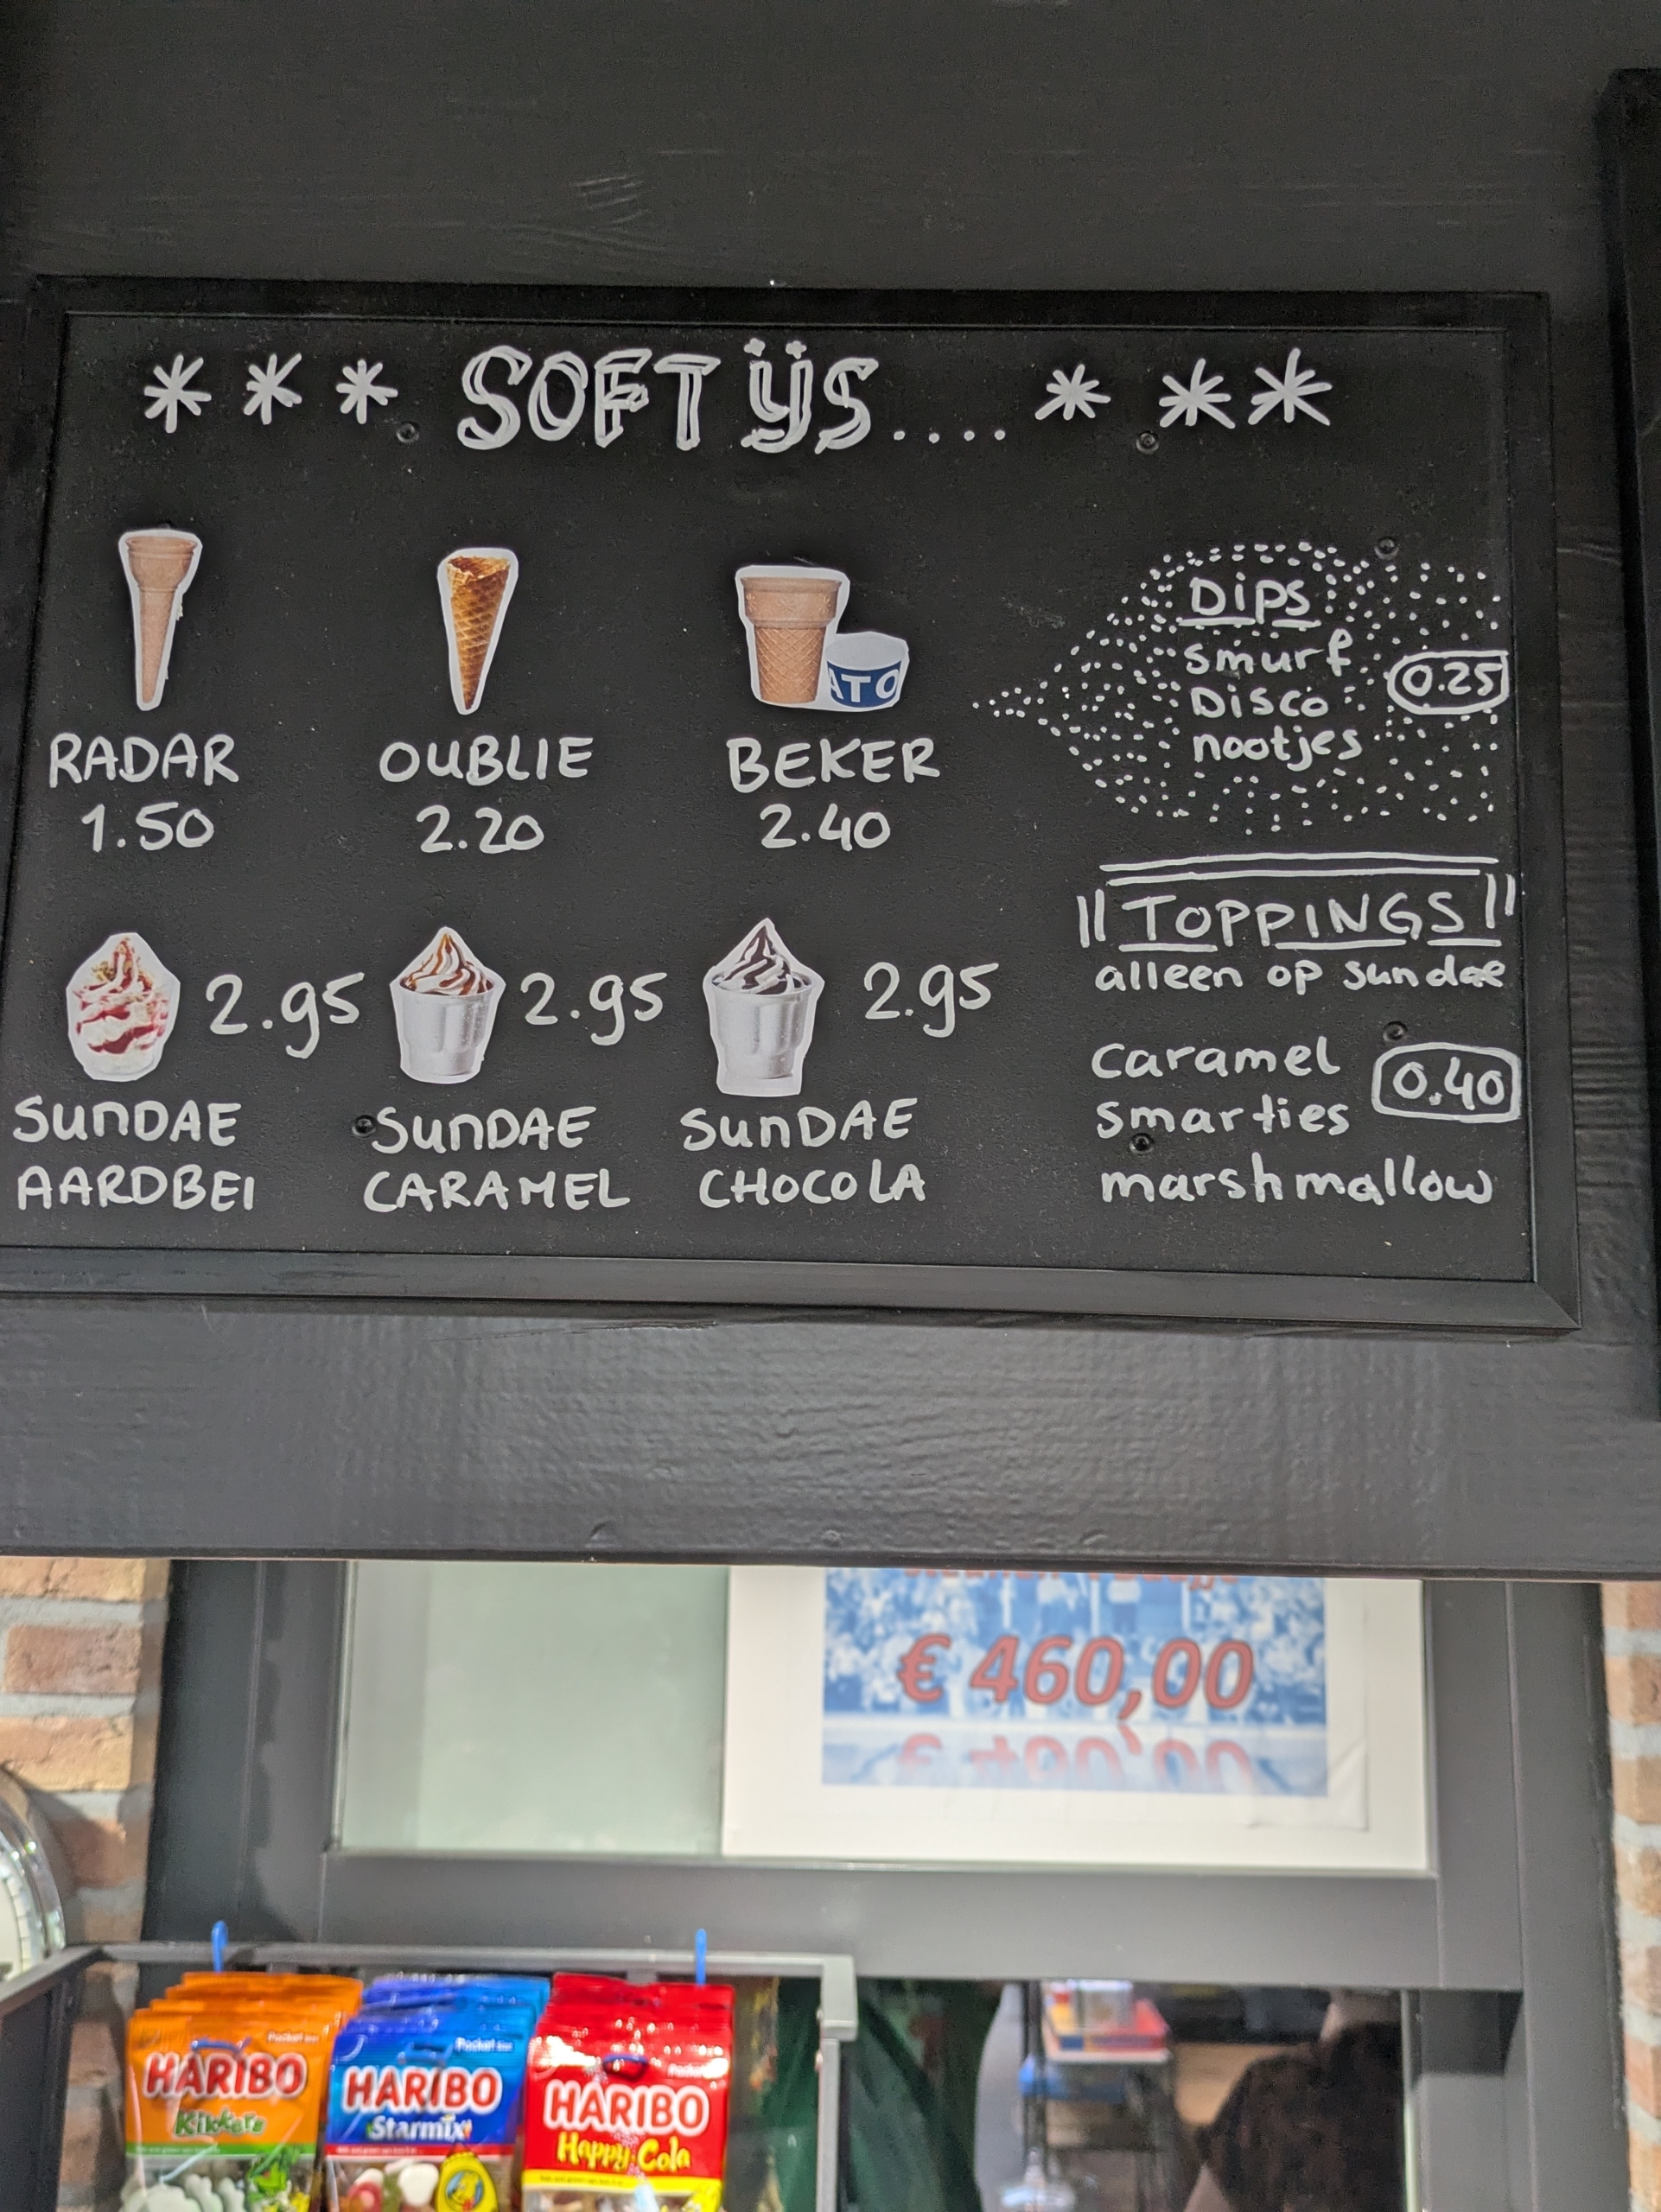 *** SOFT ijs.... ***
RADAR
1.50
OUBLIE
2.20
ATO
BEKER
2.40
Dips
smurf
Disco
nootjes
0.25
2.95
SunDAE
AARDBEI
2.95
SunDAE
CARAMEL
2.95
SunDAE
CHOCOLA
TOPPINGS
alleen op sundae
caramel
smarties
marshmallow
0.40
€ 460,00
HARIBO
Kikkers
Pocket
HARIBO
Starmix
Pocket
HARIBO
Happy Cola